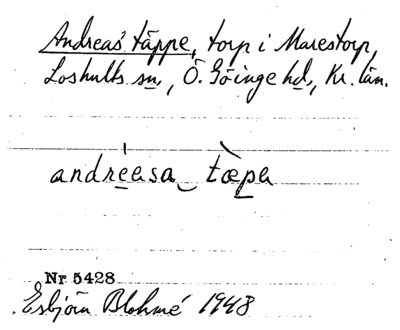 Andreas' täppe, torp i Marestorp,
Loshults sn, Ö. Göinge hd, Kr. län.
andrèasa‿tæ̀pa
Nr 5428
Esbjörn Blohmé 1948